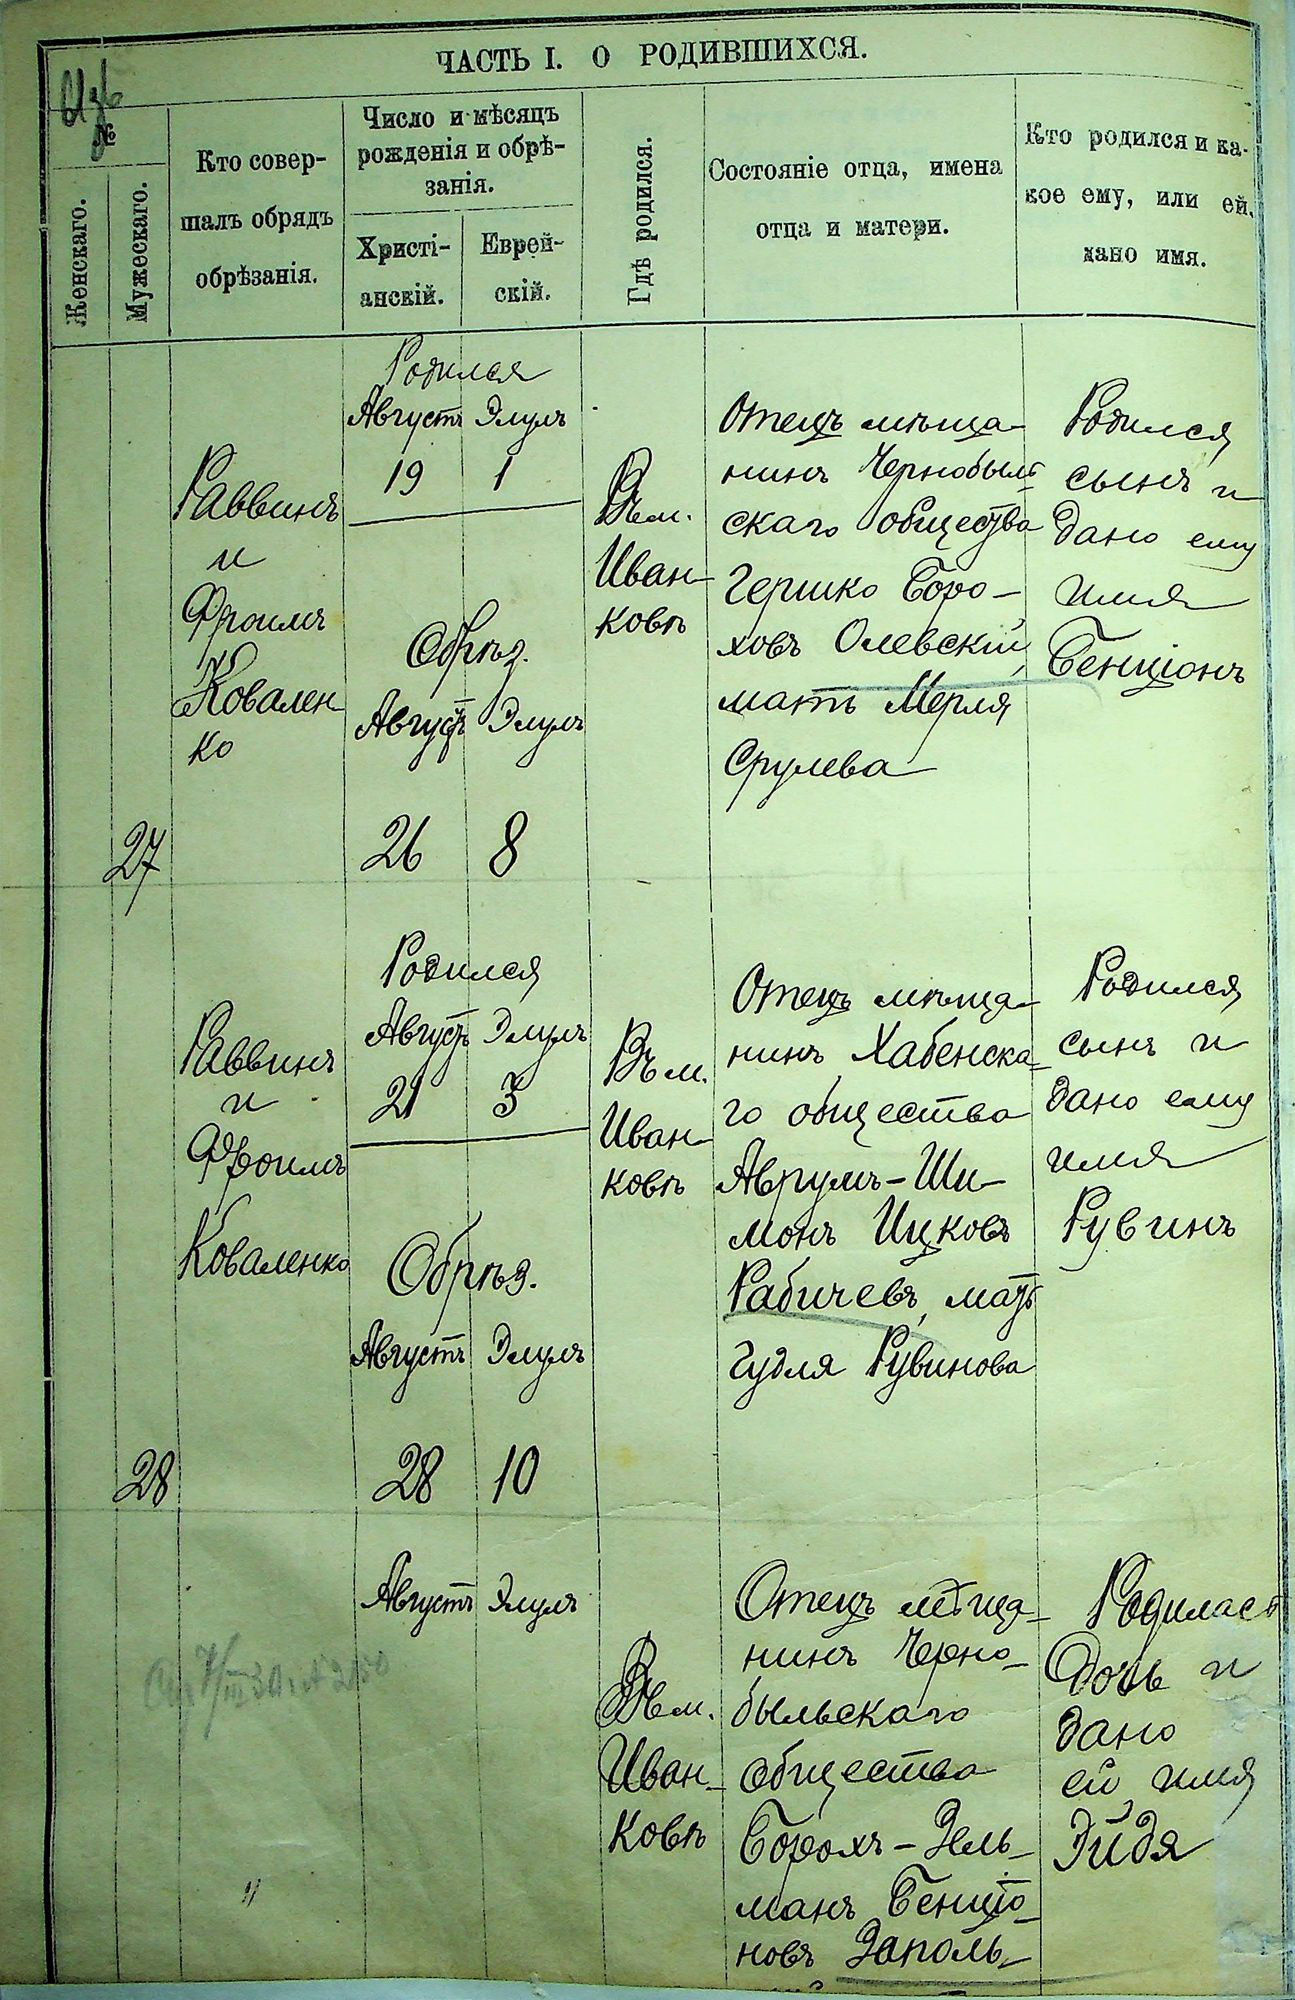 ЧАСТЬ I. О РОДИВШИХСЯ.
№
Женскаго.
Мужескаго.
Кто совер-
шалъ обрядъ
обрѣзанія.
Число и мѣсяцъ
рожденія и обрѣ-
занія.
Христі-
анскій.
Еврей-
скій.
Гдѣ родился.
Состояніе отца, имена
отца и матери.
Кто родился и ка-
кое ему, или ей,
дано имя.
27
Раввинъ
и
Фроимъ
Ковален-
ко
Родился
Августъ Элулъ
19 1
Обрѣз.
Августъ Элулъ
26 8
Въ м.
Иван-
ковѣ
Отецъ мѣща-
нинъ Чернобыль-
скаго общества
Гершко Боро-
ховъ Олевскій,
мать Мерля
Срулева
Родился
сынъ и
дано ему
имя
Бенціонъ
28
Раввинъ
и
Фроимъ
Коваленко
Родился
Августъ Элулъ
21 3
Обрѣз.
Августъ Элулъ
28 10
Въ м.
Иван-
ковѣ
Отецъ мѣща-
нинъ Хабенска-
го общества
Аврумъ-Ши-
монъ Ицковъ
Рабичевъ, мать
Гудля Рувинова
Родился
сынъ и
дано ему
имя
Рувинъ
Августъ Элулъ
Въ м.
Иван-
ковѣ
Отецъ мѣща-
нинъ Черно-
быльскаго
общества
Борохъ-Зель-
манъ Бенціо-
новъ Заполь-
Родилась
дочь и
дано
ей имя
Эйдя